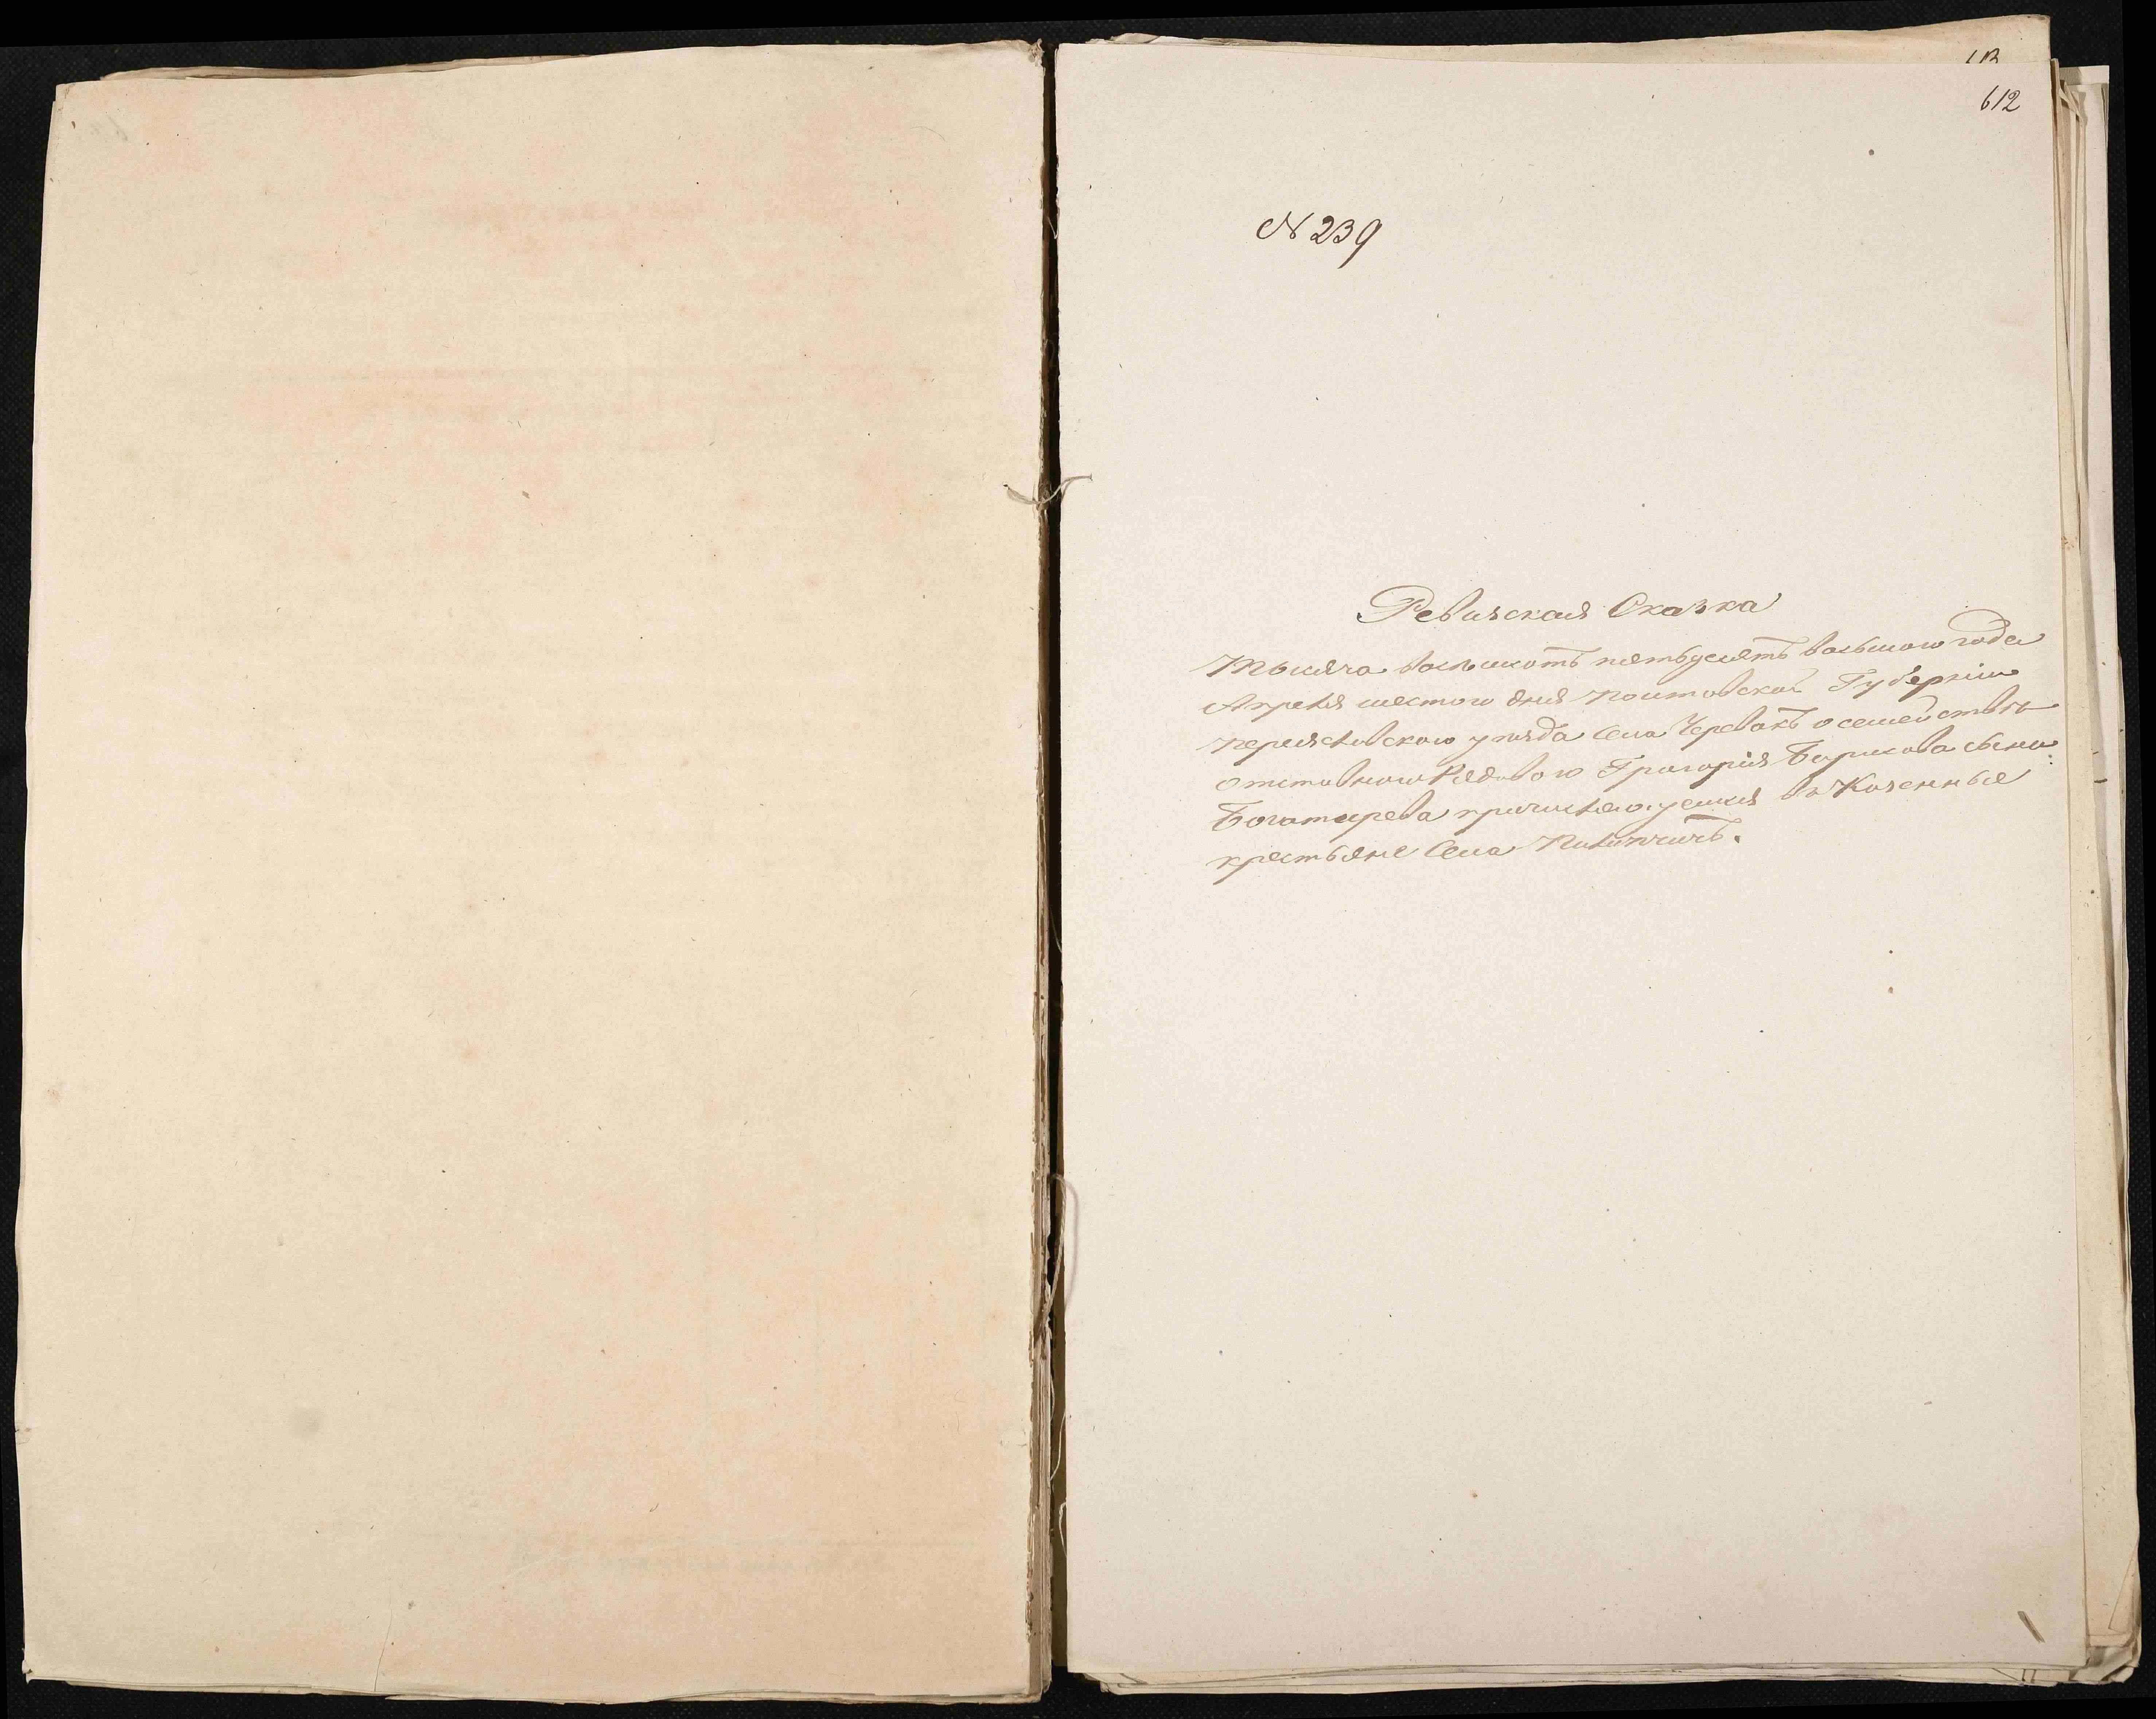 612
N 239
Ревизская Сказка
Тысяча восемсотъ пятьдесятъ восьмого года
Апреля шестого дня Полтовской Губерніи
переясловского уѣзда Села Черевакъ о семействѣ
отставного Рядового Григорія Борисова сына
Богатирева причисляющемся въ Казенные
крестьяне Села